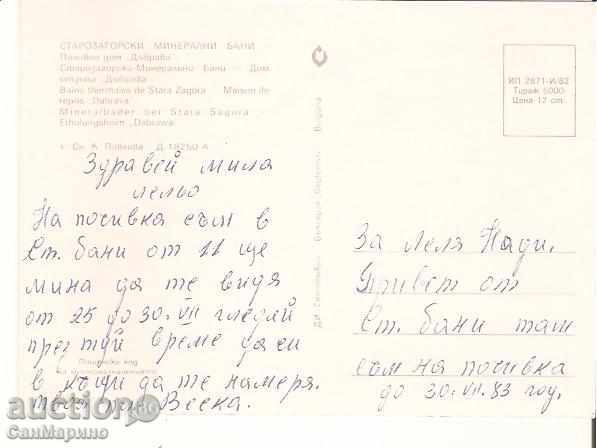 СТАРОЗАГОРСКИ МИНЕРАЛНИ БАНИ
Почивен дом „Дъбрава"
Старозагорские Минеральные Бани — Дом
отдыха „Дъбрава"
Bains thermales de Stara Zagora Maison de
repos „Dabrava"
Mineralbäder bei Stara Sagora
Erholungsheim „Dabrawa"
Д 18250 А
ИП 2671-И/82
Тираж 5000
Цена 12 cm.
Здравей мила
лельо
На почивка съм в
Ст. бани от 11 ще
мина да те видя
от 25 до 30. VII гледай
през туй време да си
в къщи да те намеря.
Веска.
Пощенски код
България
Bulgaria
За Леля Нади.
Привет от
Ст. бани там
съм на почивка
до 30. VII. 83 год.
auction
СанМарино